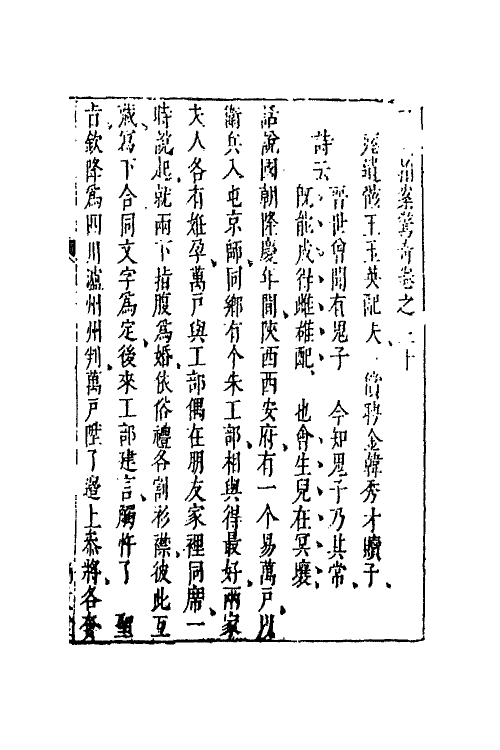 二拍案驚奇卷之三十
瘞遺骸王玉英配夫 償聘金韓秀才贖子
晉世曾聞有鬼子 今知鬼子乃其常
詩云
既能成得雌雄配 也會生兒在冥壤
話說國朝隆慶年間陝西西安府有一个易萬戶以
衛兵入屯京師同鄉有个朱工部相與得最好兩家
夫人各有姙孕萬戶與工部偶在朋友家裡同席一
時說起就兩下指腹為婚依俗禮各割衫襟彼此互
藏寫下合同文字為定後來工部建言觸忤了 聖
旨欽降為四川瀘州州判萬戶陞了邊上叅將各奔